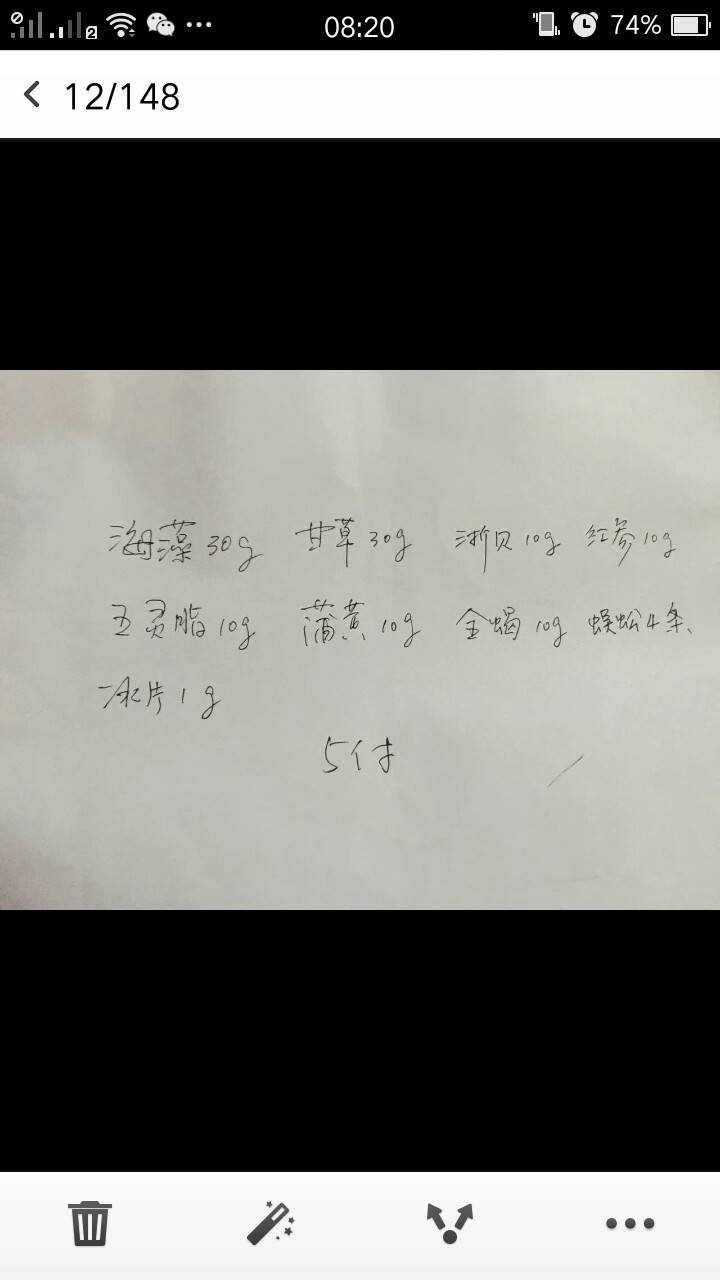 08:20 74%
2
12/148
海藻30g 甘草30g 浙贝10g 红参10g
五灵脂10g 蒲黄10g 全蝎10g 蜈蚣4条、
冰片1g
5付